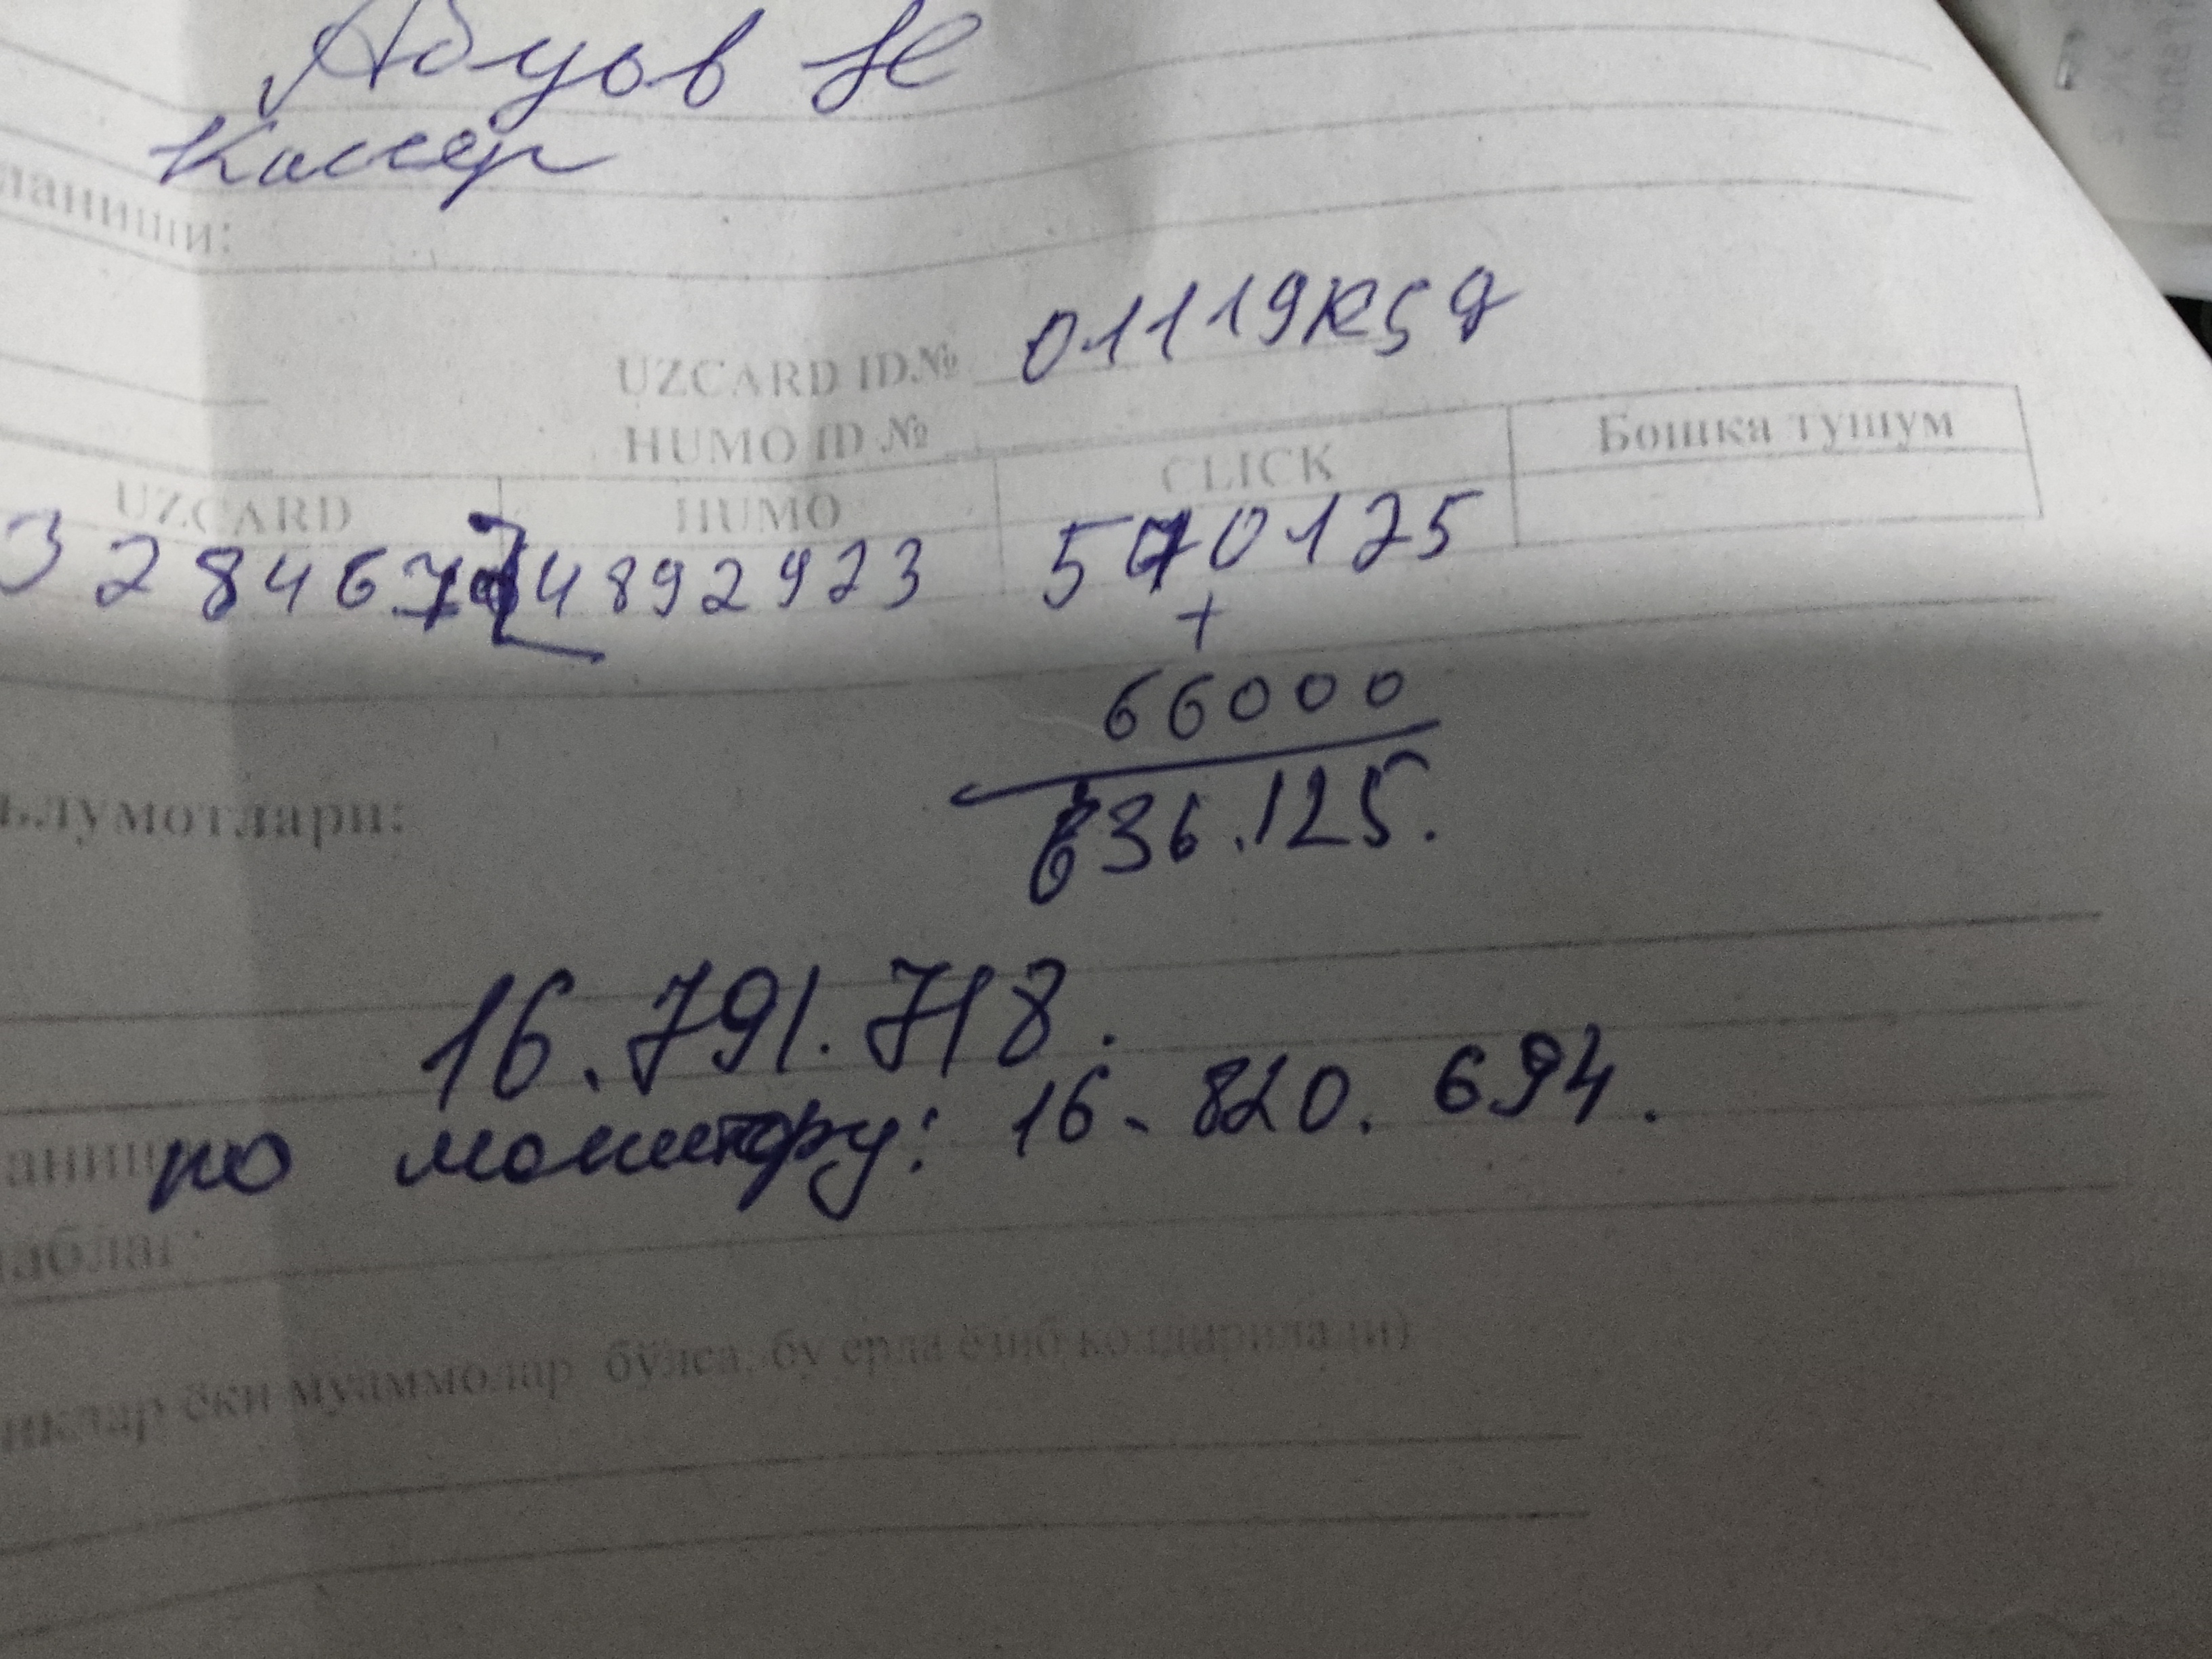 Абуов Н
Кассер
ланиши:
UZCARD ID№ 01119K59
HUMO ID №
UZCARD HUMO CLICK Бошка тушум
4892923 570125
+
66000
636.125.
ълумотлари:
16.791.718.
по монитору: 16.820.694.
аниш
аблағ:
иклар ёки муаммолар бўлса, бу ерда ёзиб колдирилади)